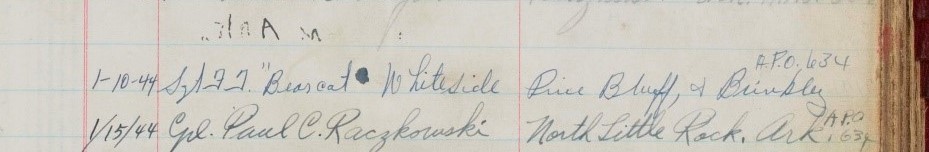 A.P.O. 634
1-10-44 Sgt F. F. "Bearcat" Whiteside Pine Bluff, & Brinkley
1/15/44 Cpl. Paul C. Raczkowski North Little Rock, Ark. A.P.O. 634